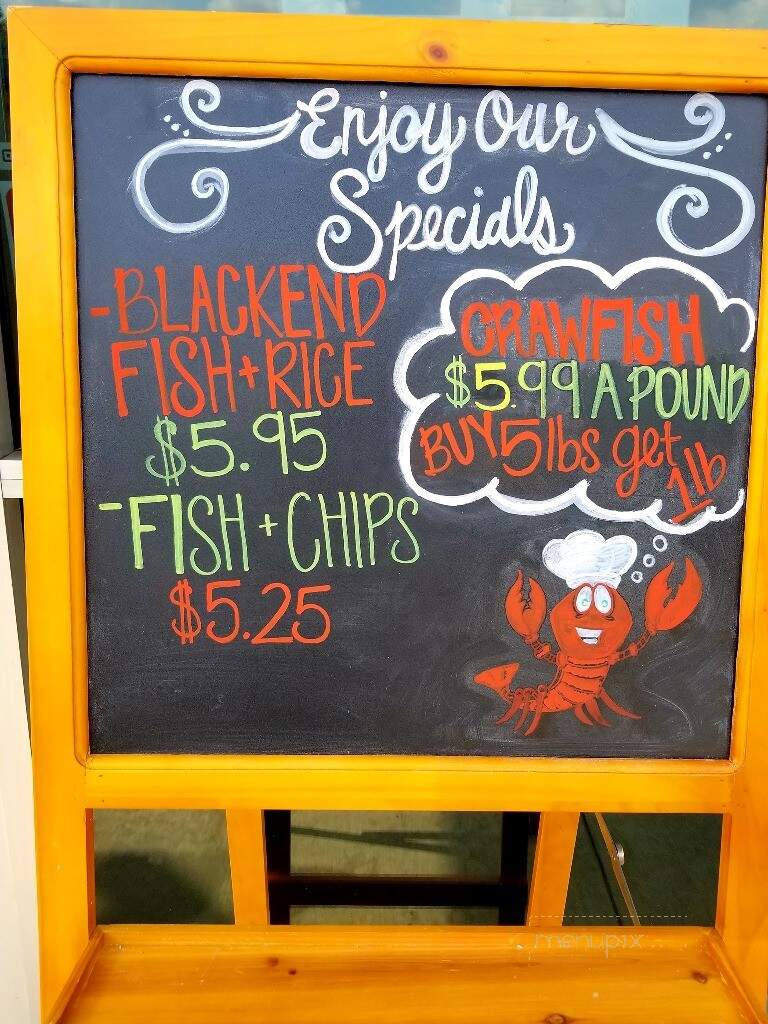 Enjoy Our
Specials
-BLACKEND
FISH+RICE
$5.95
-FISH+CHIPS
$5.25
CRAWFISH
$5.99 A POUND
BUY 5 lbs get
1 lb
menupix